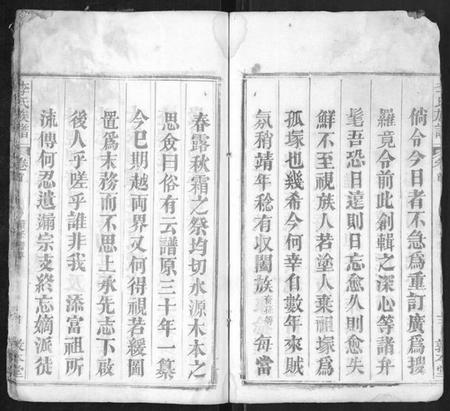 倘今今日者不急為重訂廣為搜
羅竟令前此創輯之深心等諸弁
髦吾恐日遠則日忘愈久則愈失
鮮不至視族人若塗人棄祖塚為
孤塚也幾希今何幸自數年來賊
氛稍靖年稔有收闔族 每當
春露秋霜之祭均切水源木本之
思僉曰俗有云譜原三十年一集
今已期越兩界又何得視若緩圖
置為末務而不思上承先志下啟
後人乎嗟乎誰非我 添富祖所
流傳何忍遺漏宗支終忘嫡派徒
李氏族譜 卷首